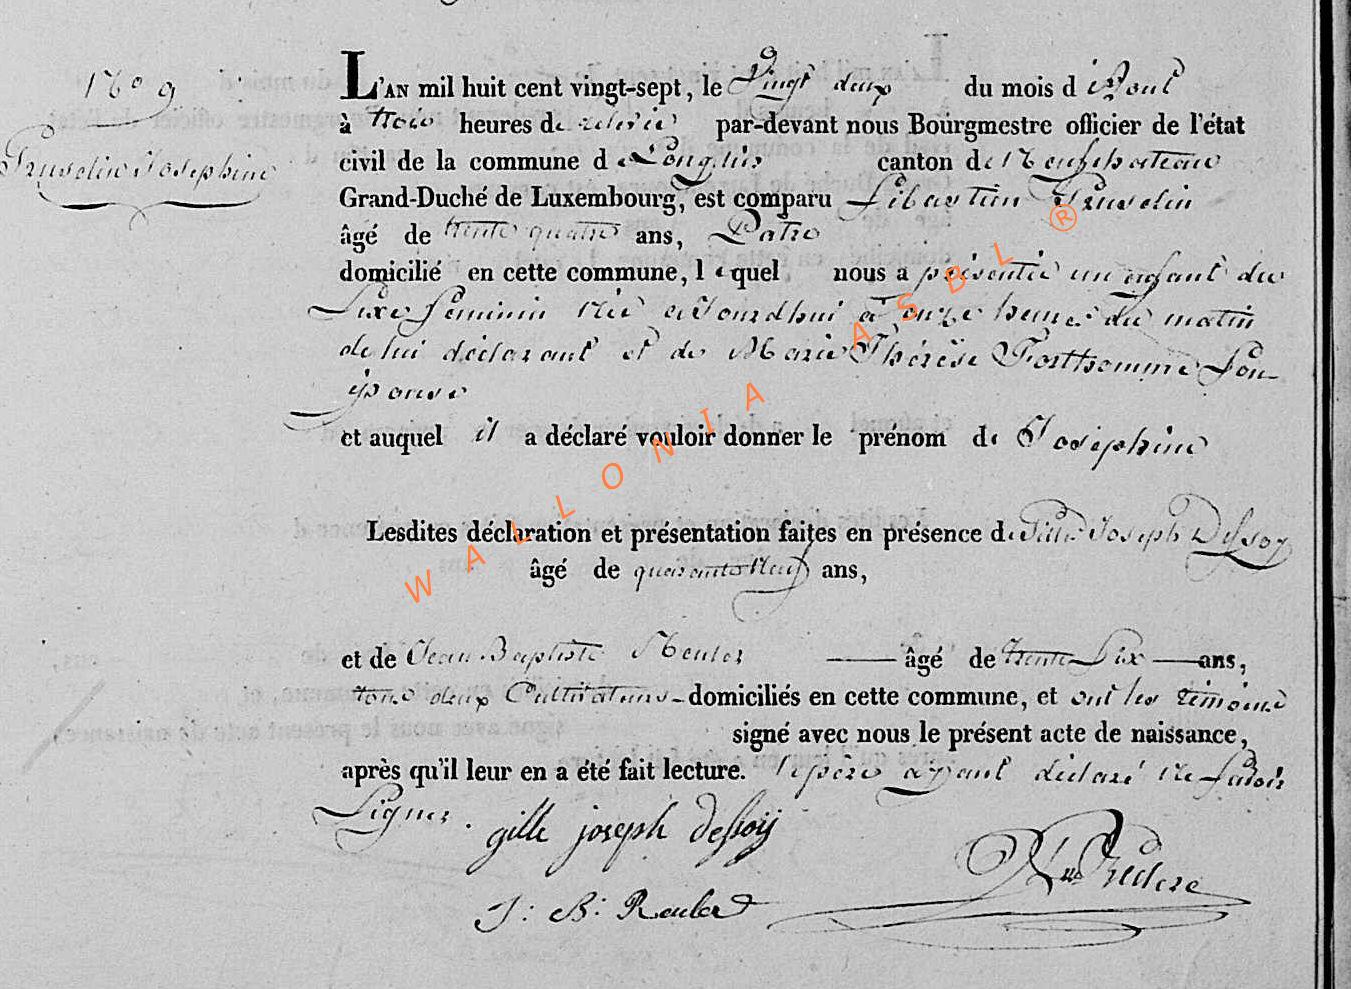 N° 9
Pruvelin Josephine
L'AN mil huit cent vingt-sept, le Vingt deux du mois d'Aout
à trois heures de relevée par-devant nous Bourgmestre officier de l'état
civil de la commune de Longlier canton de Neufchateau
Grand-Duché de Luxembourg, est comparu Sibastien
âgé de trente quatre ans, Patre
domicilié en cette commune, lequel nous a présentée un enfant du
Sexe feminin née aujourdhui à onze heures du matin
de lui déclarant et de Marie Thérèse Forthomme Son
épouse
et auquel il a déclaré vouloir donner le prénom de Josephine
Lesdites déclaration et présentation faites en présence de Gille Joseph Dessoy
âgé de quarante neuf ans,
et de Jean Baptiste Reuler âgé de trente Six ans,
tous deux Cultivateurs domiciliés en cette commune, et ont les témoins
signé avec nous le présent acte de naissance,
après qu'il leur en a été fait lecture. le père ayant déclaré ne Savoir
Signer.
gille joseph dessoij
J: B: Reuler
WALLONIA ASBL ®